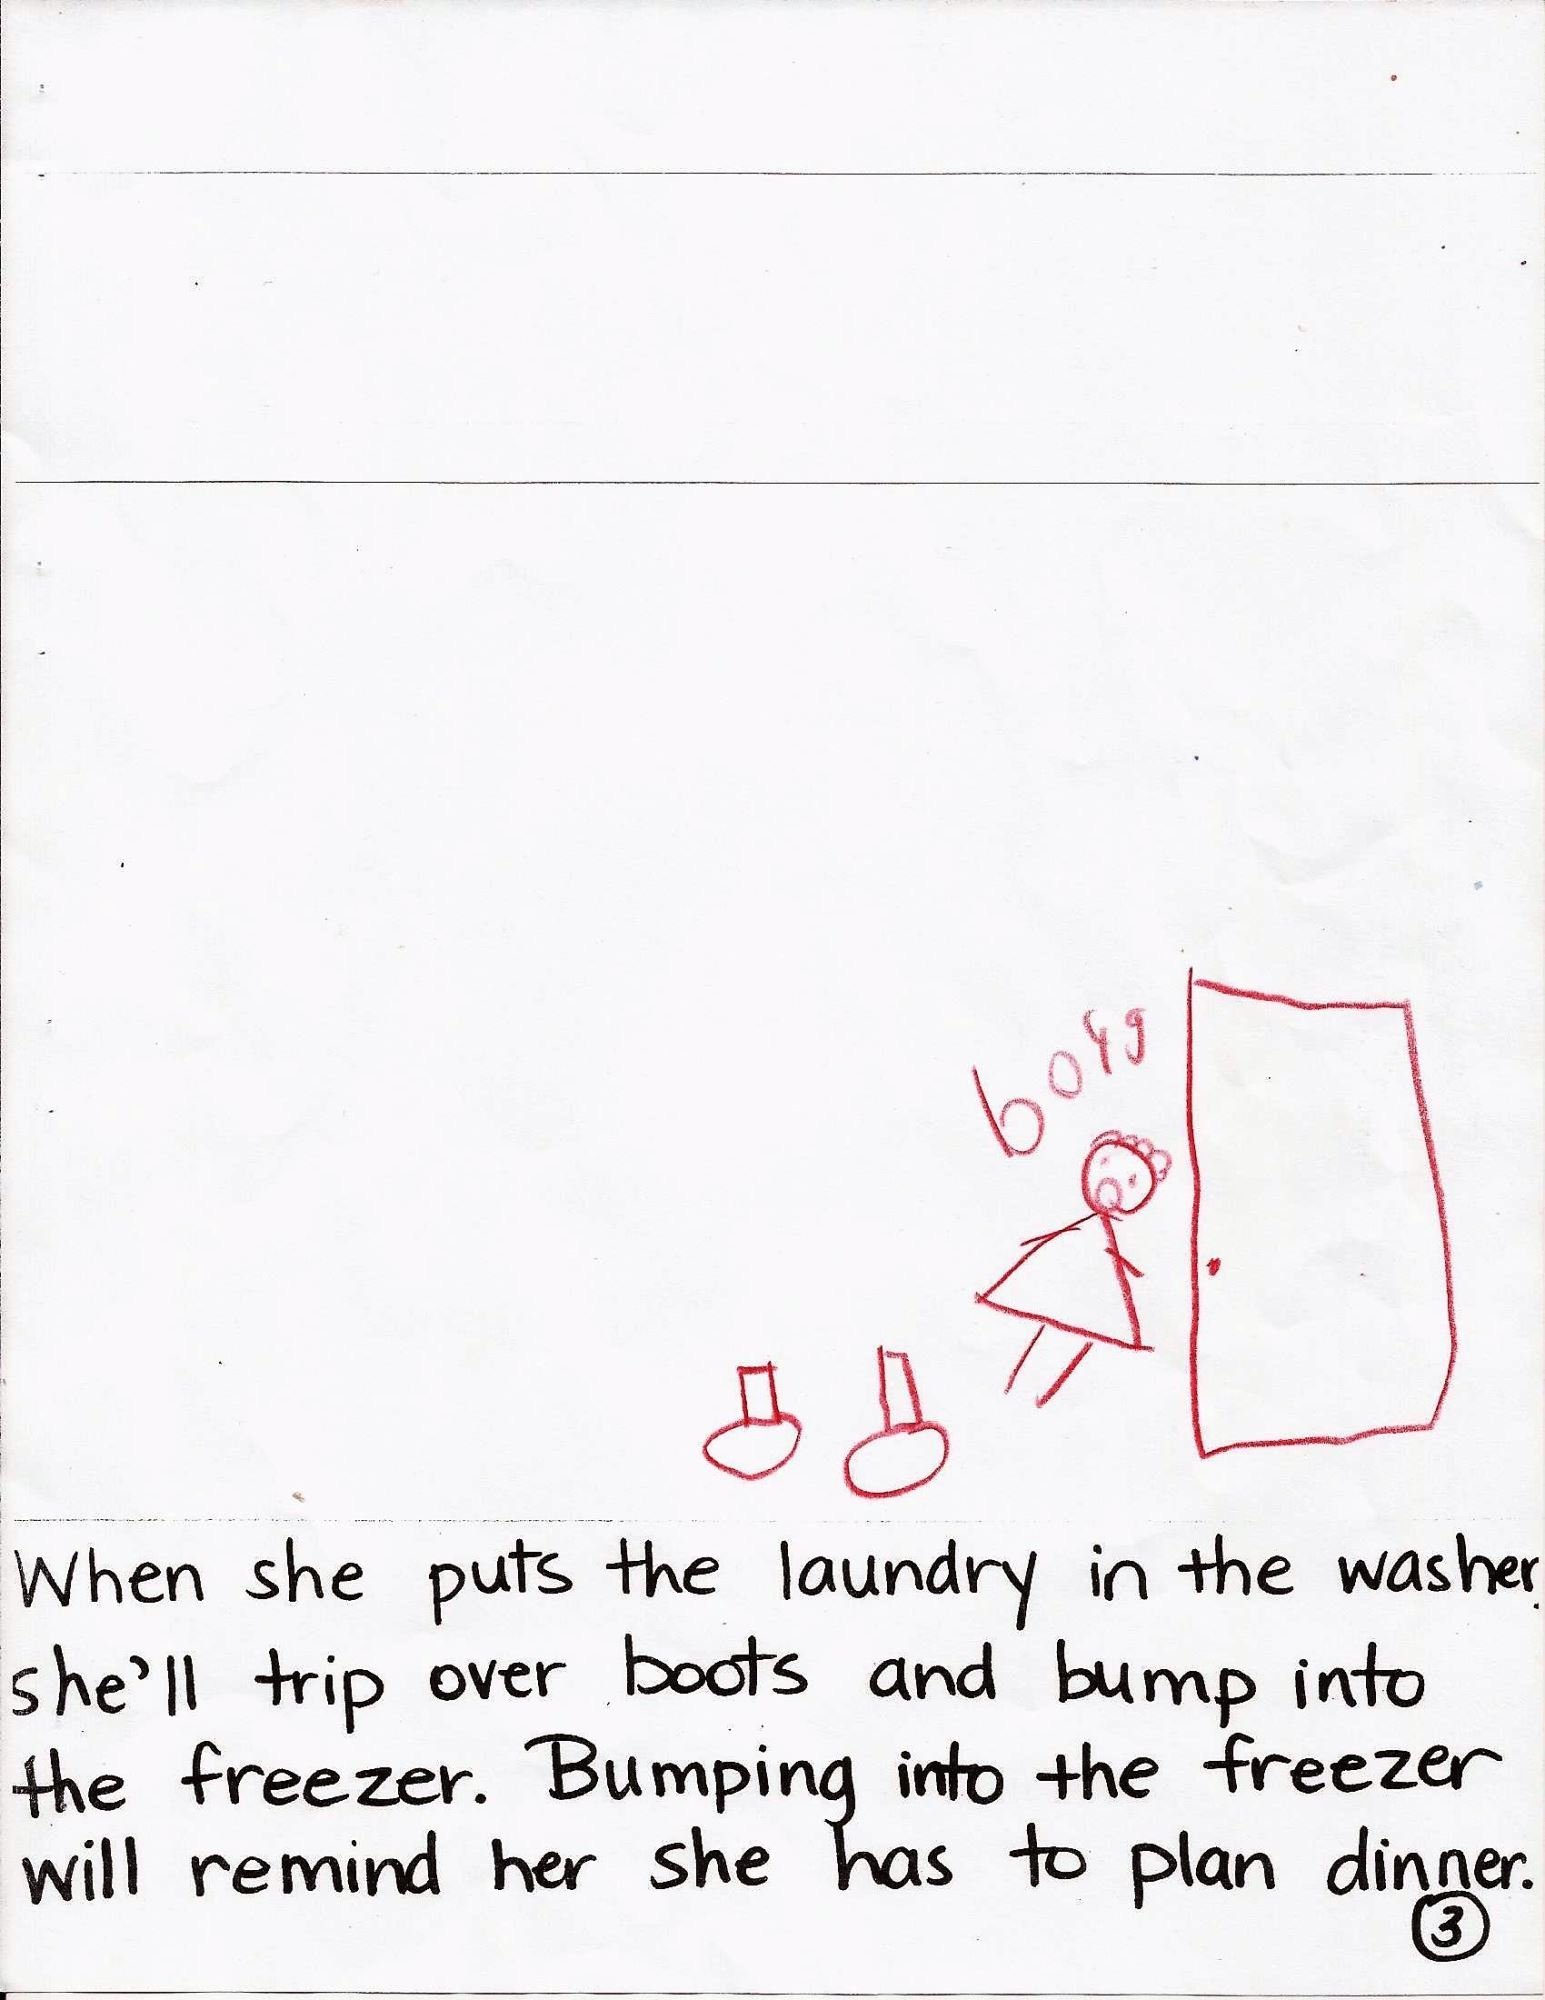 boyg
When she puts the laundry in the washer,
she'll trip over boots and bump into
the freezer. Bumping into the freezer
will remind her she has to plan dinner.
3